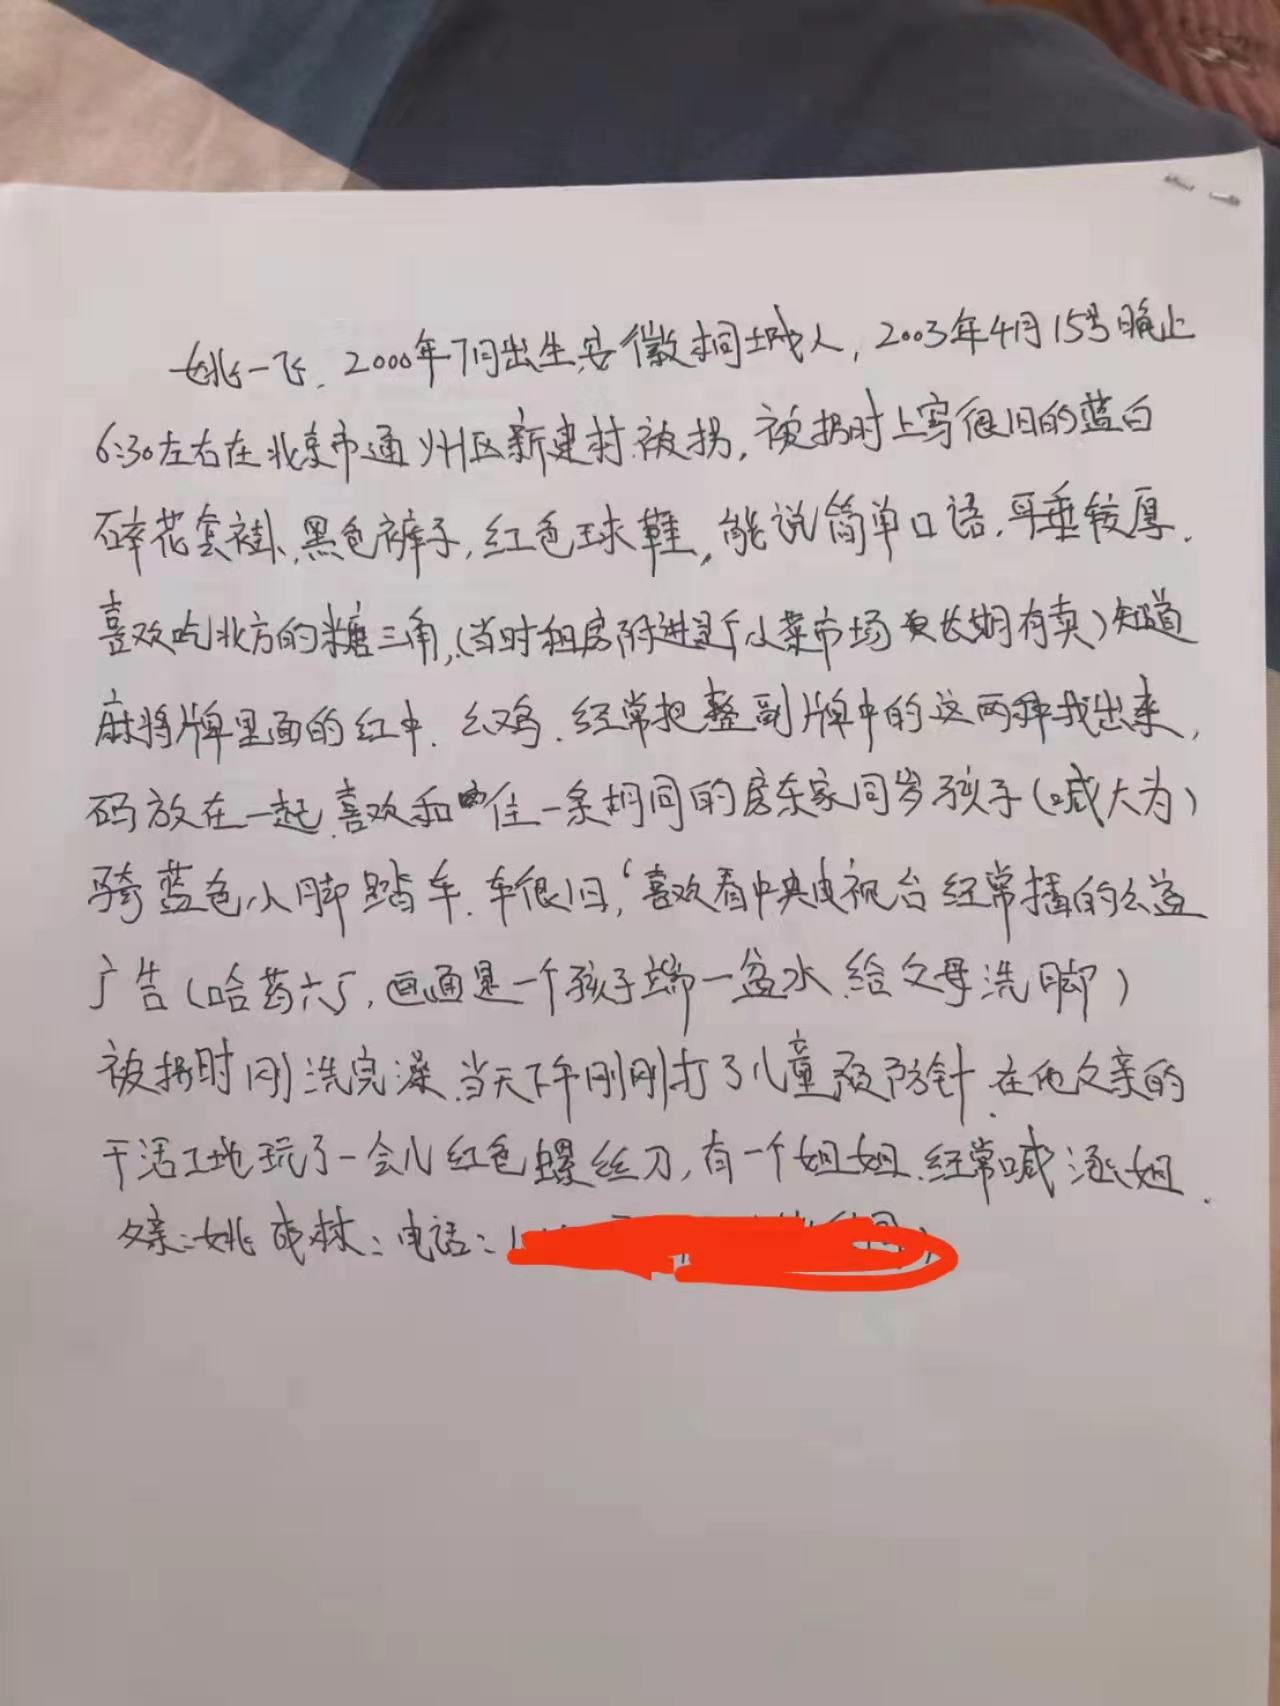 姚一飞.2000年7月出生.安徽桐城人,2003年4月15号晚上
6:30左右在北京市通州区新建村.被拐,被拐时上穿很旧的蓝白
碎花套褂、黑色裤子,红色球鞋,能说简单口语.耳垂较厚.
喜欢吃北方的糖三角,(当时租房附近是个小菜市场 长期有卖)知道
麻将牌里面的红中.幺鸡.经常把整副牌中的这两种找出来,
码放在一起.喜欢和 住一条胡同的房东家同岁孩子(喊大为)
骑蓝色小脚踏车.车很旧,喜欢看中央电视台经常播的公益
广告(哈药六厂,画面是一个孩子端一盆水.给父母洗脚)
被拐时刚洗完澡.当天下午刚刚打了儿童预防针.在他父亲的
干活工地玩了一会儿红色螺丝刀,有一个姐姐.经常喊 姐.
父亲:姚 林:电话:1